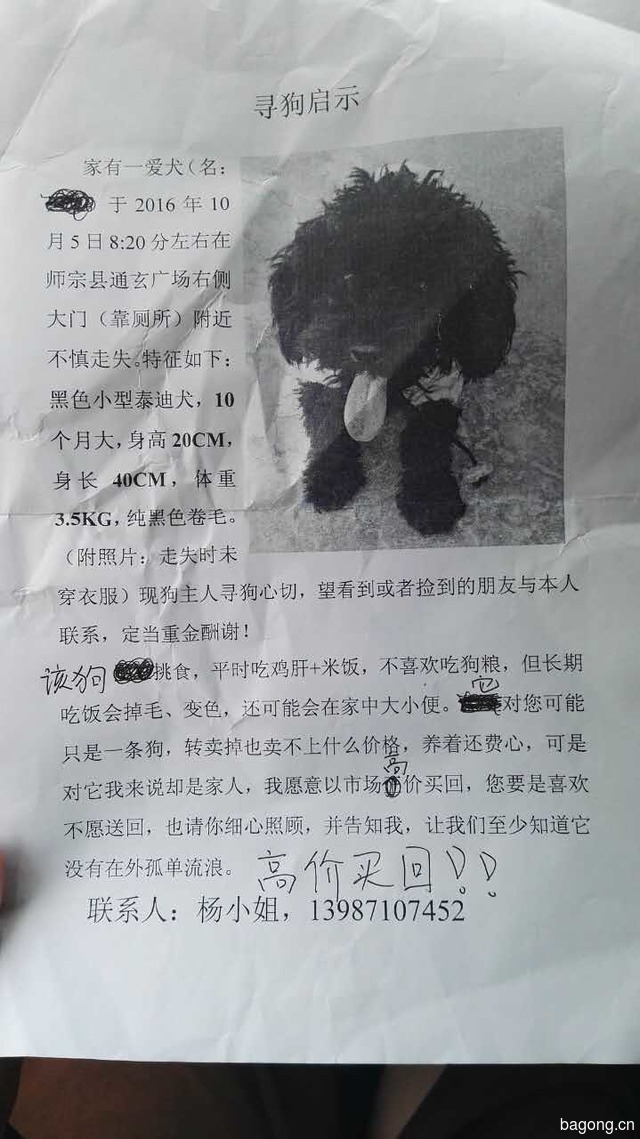 寻狗启示
家有一爱犬(名:
于 2016 年 10
月 5 日 8:20 分左右在
师宗县通玄广场右侧
大门(靠厕所)附近
不慎走失。特征如下:
黑色小型泰迪犬,10
个月大,身高 20CM,
身长 40CM,体重
3.5KG,纯黑色卷毛。
(附照片:走失时未
穿衣服)现狗主人寻狗心切,望看到或者捡到的朋友与本人
联系,定当重金酬谢!
该狗挑食,平时吃鸡肝+米饭,不喜欢吃狗粮,但长期
吃饭会掉毛、变色,还可能会在家中大小便。它对您可能
只是一条狗,转卖掉也卖不上什么价格,养着还费心,可是
对它我来说却是家人,我愿意以市场高价买回,您要是喜欢
不愿送回,也请你细心照顾,并告知我,让我们至少知道它
没有在外孤单流浪。高价买回!!
联系人:杨小姐,13987107452
bagong.cn